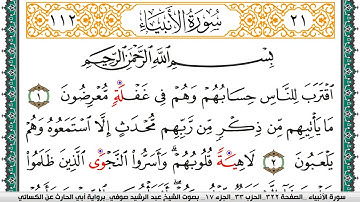 ٢١ سُورَةُ الْأَنْبِيَاءِ ١١٢
بِسْمِ اللَّهِ الرَّحْمَٰنِ الرَّحِيمِ
اقْتَرَبَ لِلنَّاسِ حِسَابُهُمْ وَهُمْ فِي غَفْلَةٍ مُعْرِضُونَ ١
مَا يَأْتِيهِمْ مِنْ ذِكْرٍ مِنْ رَبِّهِمْ مُحْدَثٍ إِلَّا اسْتَمَعُوهُ وَهُمْ
يَلْعَبُونَ ٢ لَاهِيَةً قُلُوبُهُمْ وَأَسَرُّوا النَّجْوَى الَّذِينَ ظَلَمُوا
سورة الأنبياء . الصفحة ٣٢٢ . الحزب ٣٣ . الجزء ١٧ . بصوت الشيخ عبد الرشيد صوفي . برواية أبي الحارث عن الكسائي